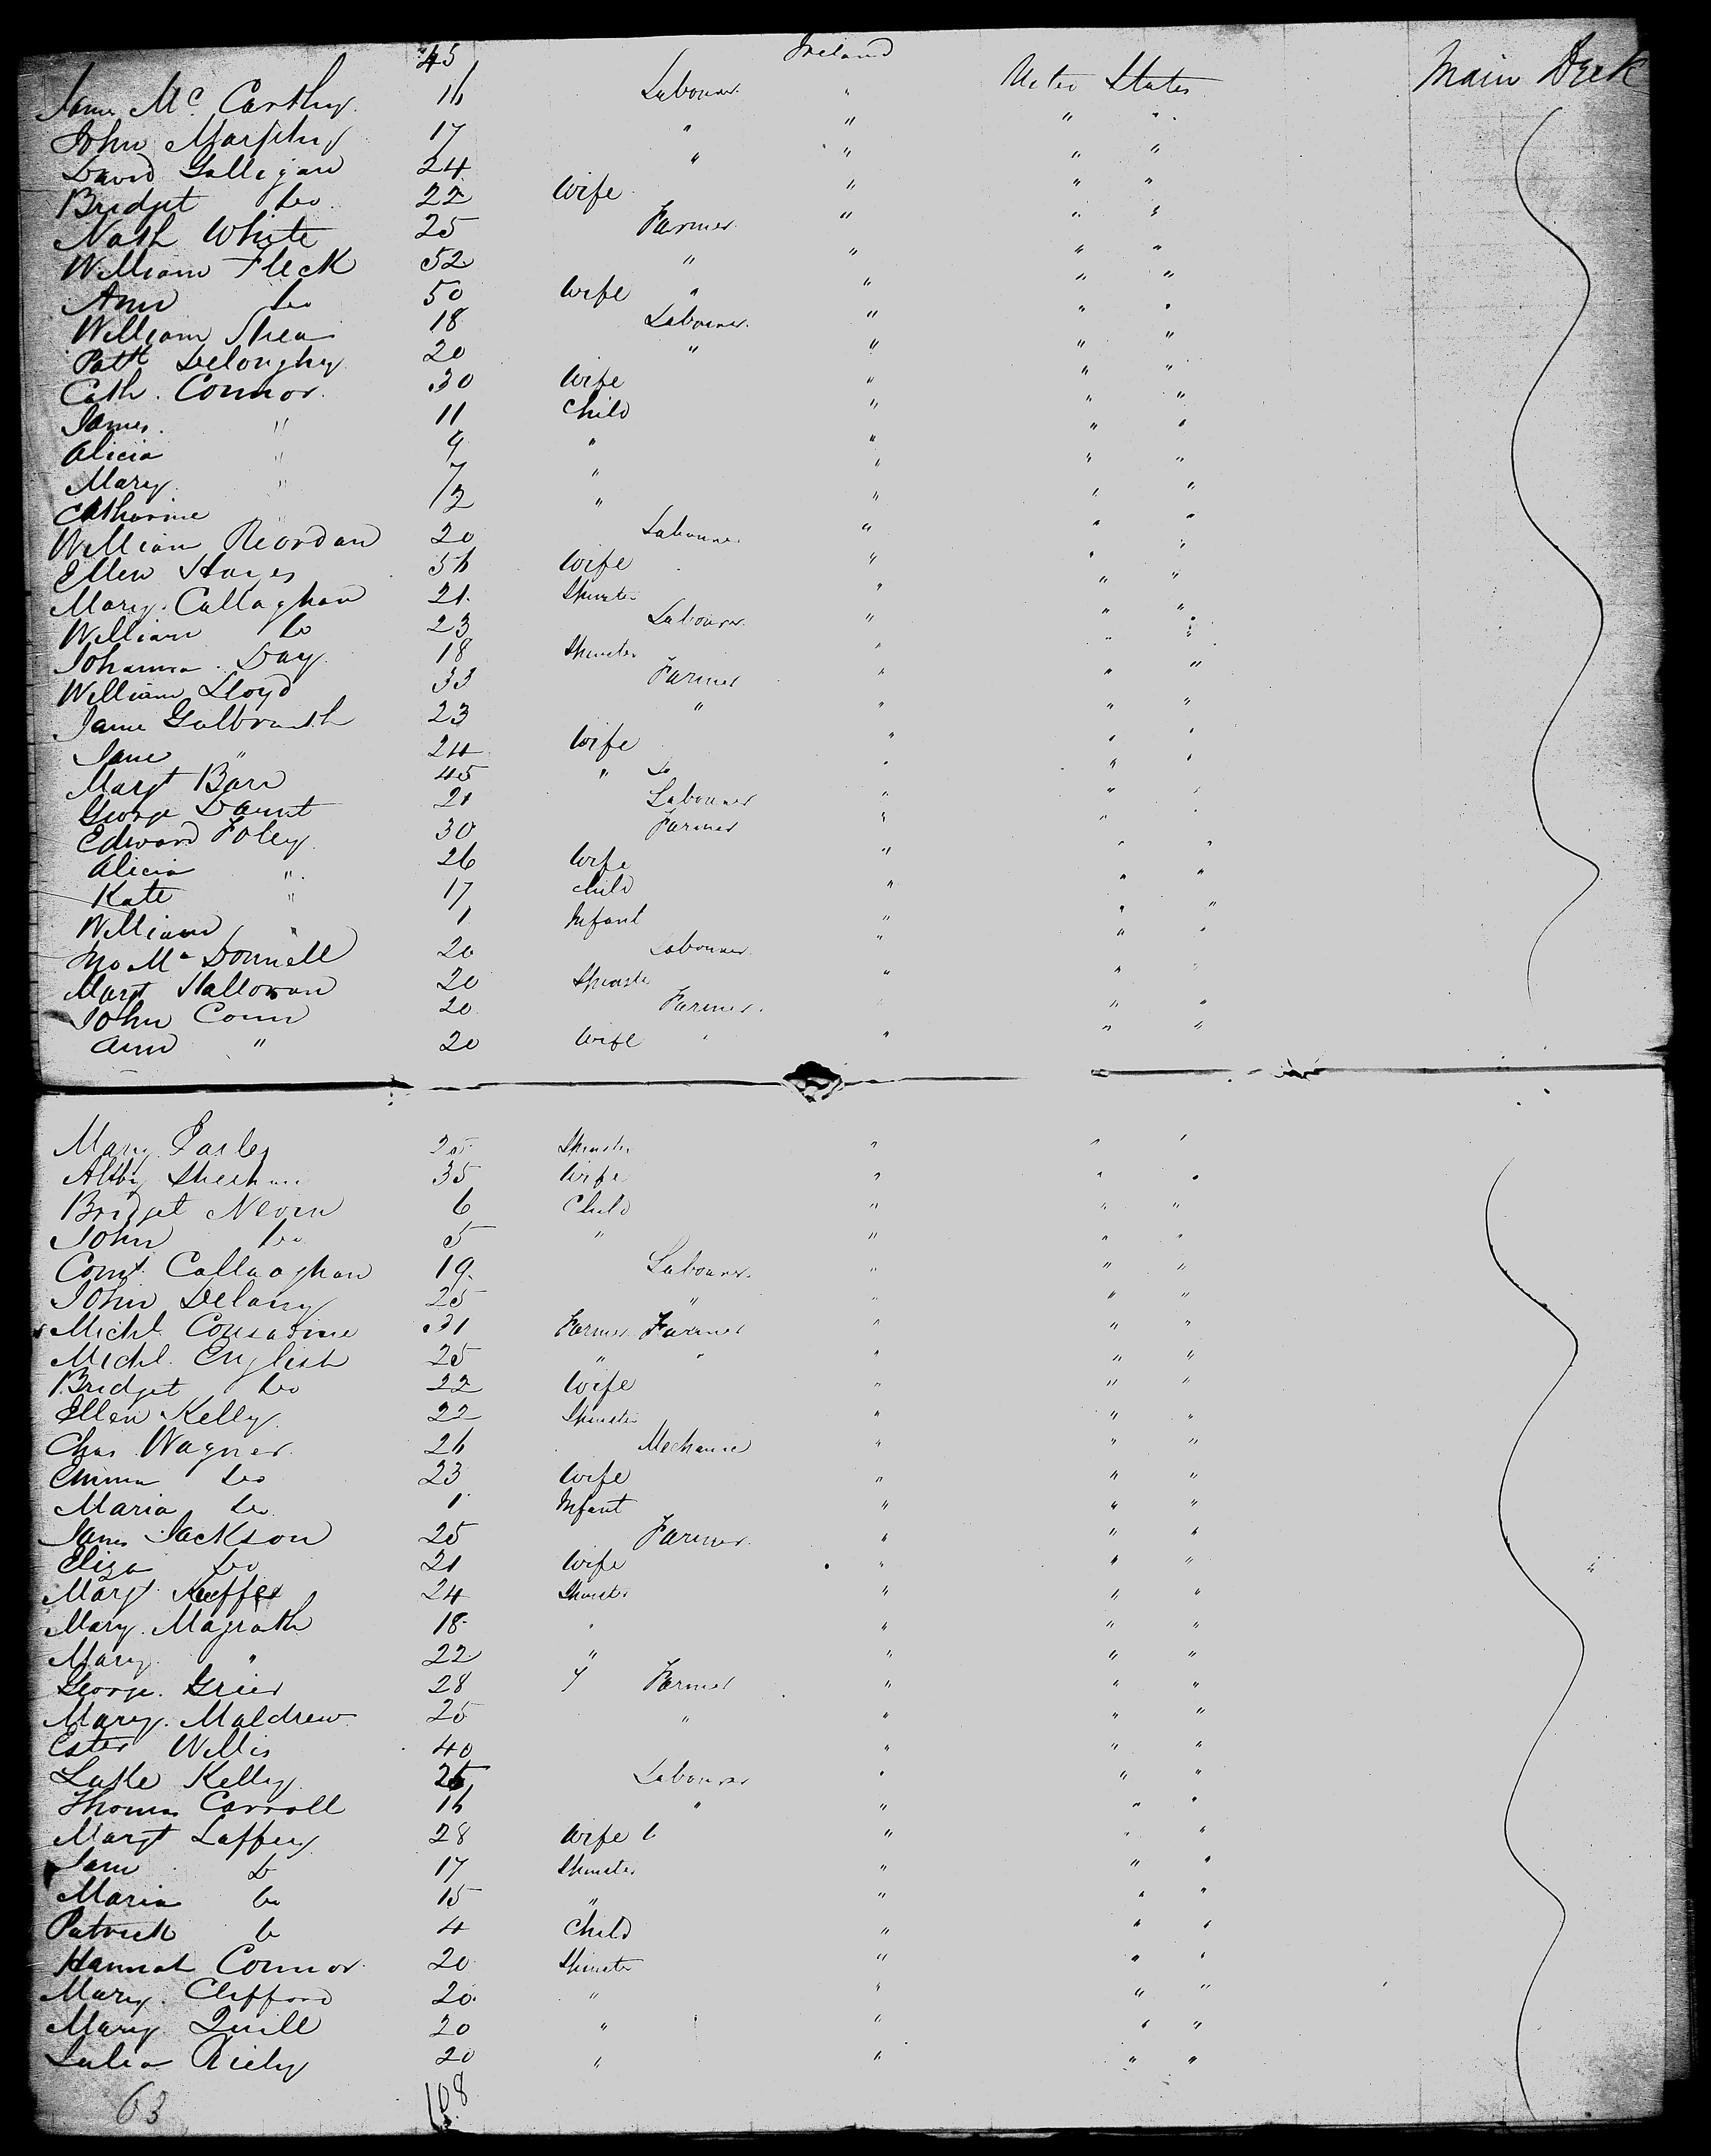 45 Ireland
James Mc Carthy 16 Labourer " United States Main Deck
John Murphy 17 " " " "
David Galligan 24 " " " "
Bridget Do 22 Wife " " "
Nath White 25 Farmer " " "
William Fleck 52 " " " "
Ann Do 50 Wife " " " "
William Shea 18 Labourer " " "
Patk Deloughy 20 " " " "
Cath. Connor 30 Wife " " "
James " 11 Child " " "
Alicia " 9 " " " "
Mary " 7 " " " "
Catharine " 1/2 " " " "
William Reordan 20 Labourer " " "
Ellen Hayes 36 Wife " " "
Mary Callaghan 21 Spinster " " "
William Do 23 Labourer " " "
Johanna Day 18 Spinster " " "
William Lloyd 33 Farmer " " "
Jame Galbraith 23 " " " "
Jane " 24 Wife " " "
Margt Barr 45 " Do " " "
George Daunt 21 Labourer " " "
Edward Foley 30 Farmer " " "
Alicia " 26 Wife " " "
Kate " 17 Child " " "
William " 1 Infant " " "
Jno Mc Donnell 20 Labourer " " "
Margt Halloran 20 Spinster " " "
John Conn 20 Farmer " " "
Ann " 20 Wife " " " "
Mary 25 Spinster " " "
35 Wife " " "
Bridget Neven 6 Child " " "
John Do 5 " " " "
Corns Callaghan 19 Labourer " " "
John Delany 25 " " " "
Michl Consadine 31 Farmer Farmer " " "
Michl. English 25 " " " " "
Bridget Do 22 Wife " " "
Ellen Kelly 22 Spinster " " "
Chas Wagner 26 Mechanic " " "
Emma Do 23 Wife " " "
Maria Do 1 Infant " " "
James Jackson 25 Farmer " " "
Eliza Do 21 Wife " " "
Margt Keeffe 24 Spinster " " "
Mary Magrath 18 " " " "
Mary " 22 " " " "
George Grier 28 Farmer " " "
Mary Maldrew 25 " " " "
Ester Willis 40 " " "
Luke Kelly 25 Labourer " " "
Thomas Carroll 16 " " " "
Margt Laffey 28 Wife " " "
Jane Do 17 Spinster " " "
Maria Do 15 " " " "
Patrick Do 4 Child " " "
Hannah Connor 20 Spinster " " "
Mary Clifford 20 " " " "
Mary Quill 20 " " " "
Julia Riely 20 " " " "
63 108